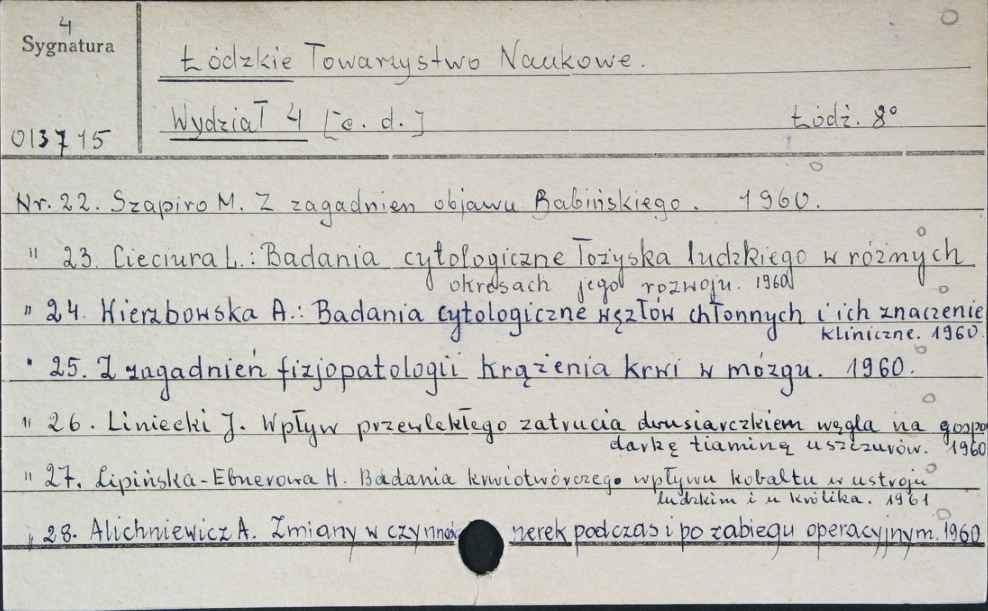 4
Sygnatura
Łódzkie Towarzystwo Naukowe.
Wydział 4 [c. d.] Łódź. 8°
013715
Nr. 22. Szapiro M. Z zagadnien objawu Babińskiego. 1960.
" 23. Cieciura L.: Badania cytologiczne łożyska ludzkiego w różnych
okresach jego rozwoju. 1960
" 24. Wierzbowska A.: Badania cytologiczne węzłów chłonnych i ich znaczenie
kliniczne. 1960.
" 25. Z zagadnień fizjopatologii krążenia krwi w mózgu. 1960.
" 26. Liniecki J. Wpływ przewlekłego zatrucia dwusiarczkiem węgla na gospo
darkę tiaminą u szczurów. 1960
" 27. Lipińska-Ebnerowa H. Badania krwiotwórczego wpływu kobaltu w ustroju
ludzkim i u królika. 1961
" 28. Alichniewicz A. Zmiany w czynnoś nerek podczas i po zabiegu operacyjnym. 1960